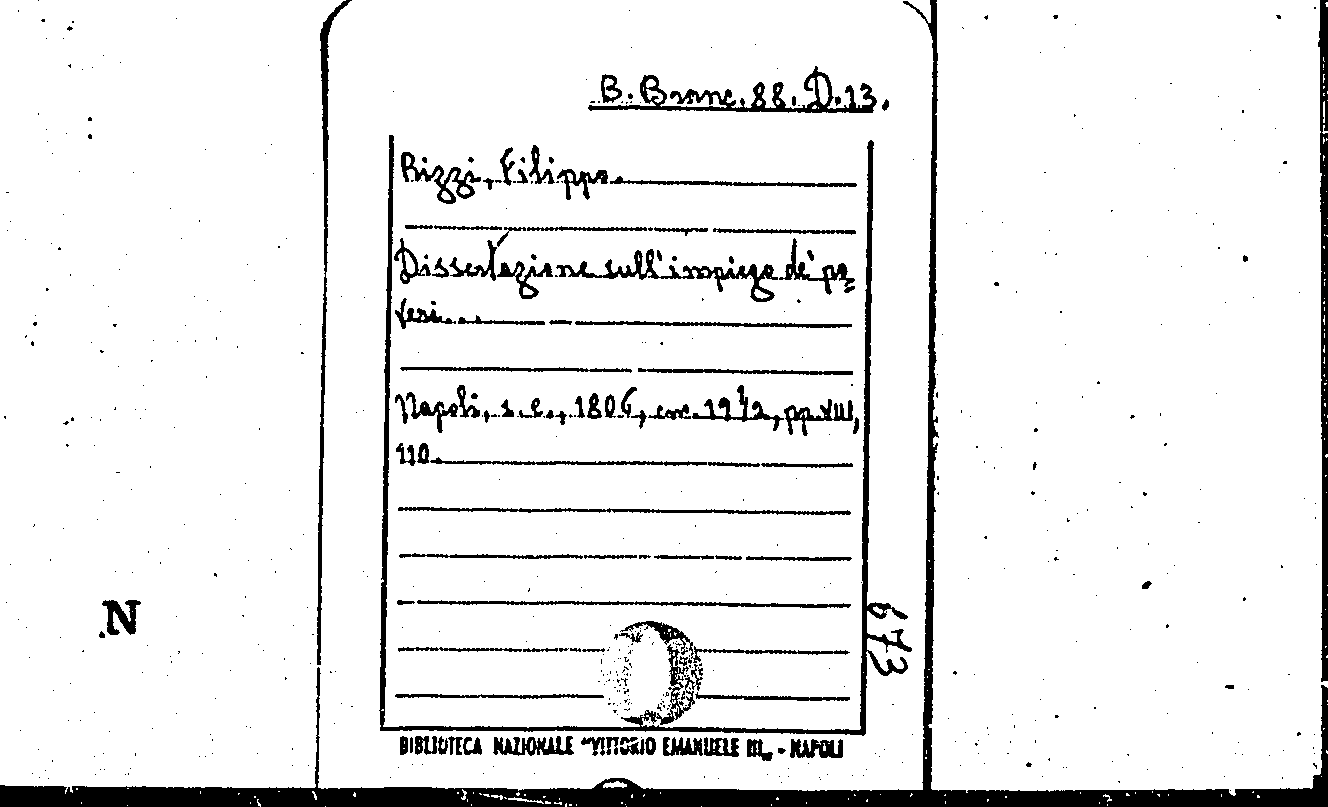 B. Branc. 88. D. 13.
Rizzi, Filippo.
Dissertazione sull'impiego de' po=
veri...
Napoli, s. e., 1806, cm. 19 1/2, pp. VIII,
110.
N
673
BIBLIOTECA NAZIONALE "VITTORIO EMANUELE III„ - NAPOLI